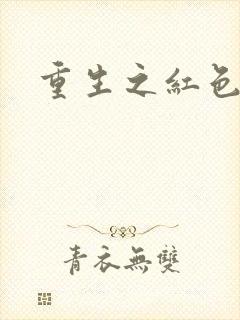 重生之紅色
青衣無雙